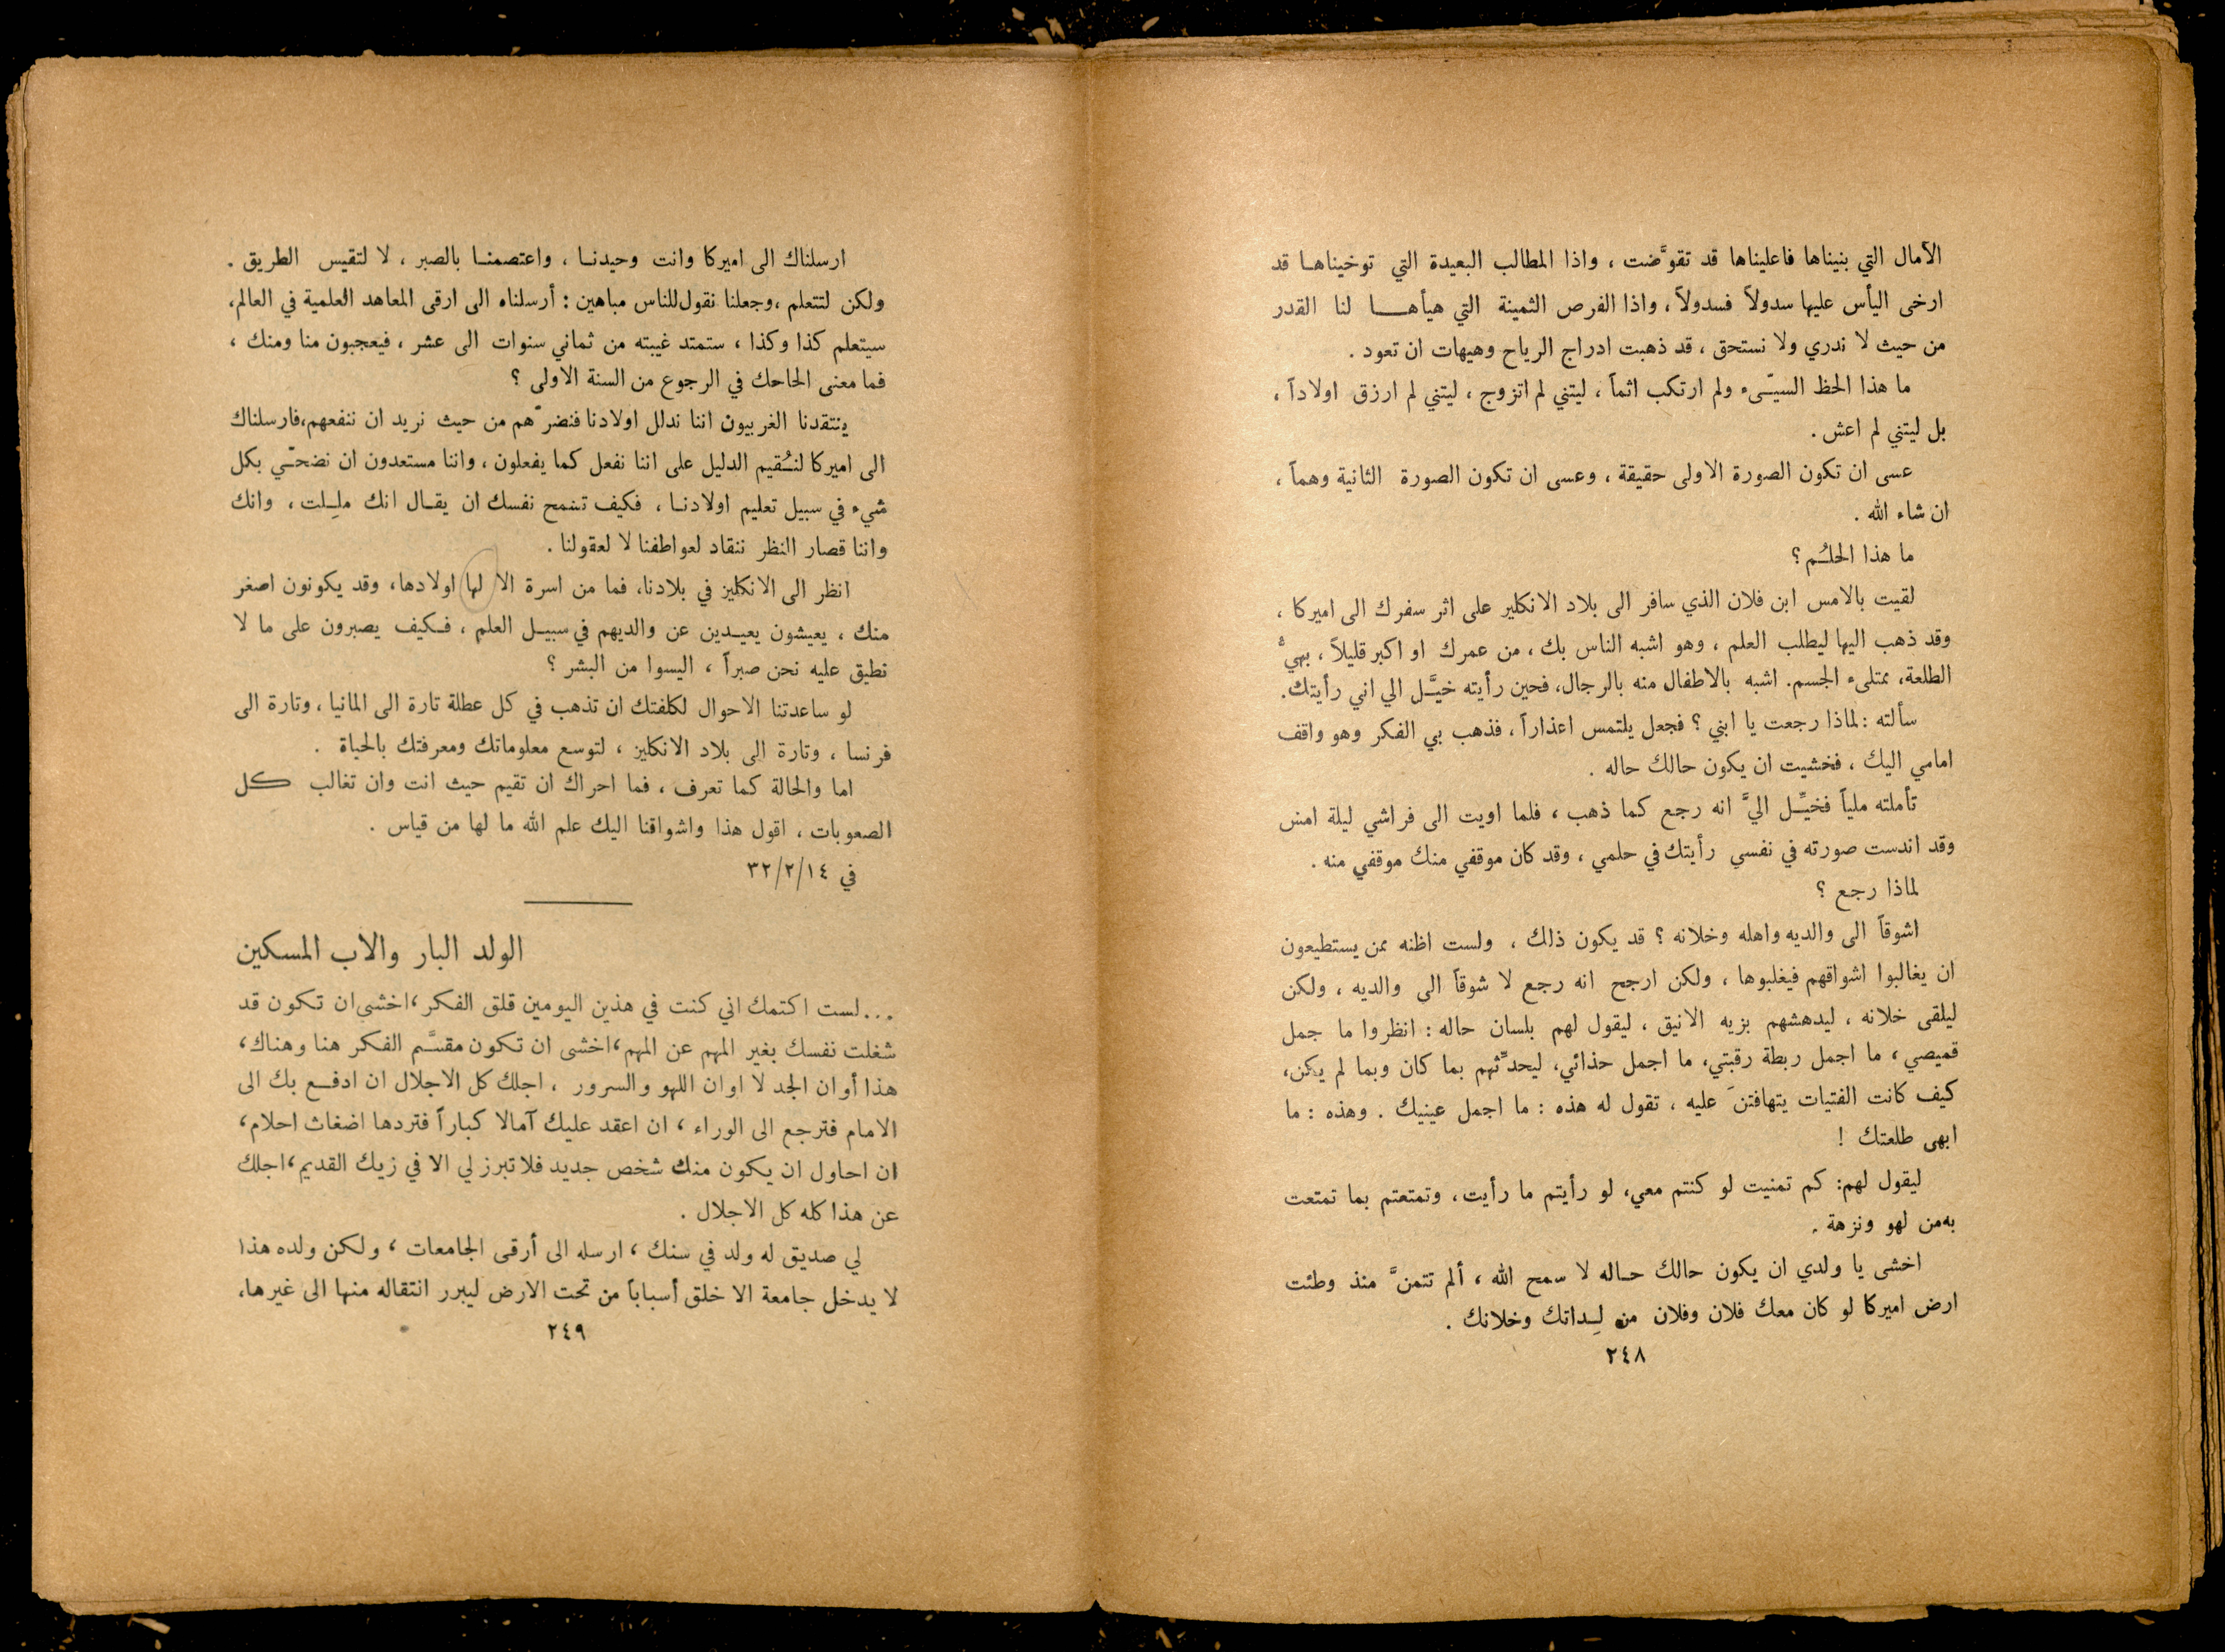 الآمال التي بنيناها فاعليناها قد تقوَّضت ، واذا المطالب البعيدة التي توخيناهـا قد
ارخى اليأس عليها سدولاً فسدولاً ، واذا الفرص الثمينة التي هيأهـــا لنا القدر
من حيث لا ندري ولا نستحق ، قد ذهبت ادراج الرياح وهيهات ان تعود .
ما هذا الحظ السيّء ولم ارتكب اثماً ، ليتني لم اتزوج ، ليتني لم ارزق اولاداً ،
بل ليتني لم اعش .
عسى ان تكون الصورة الاولى حقيقة ، وعسى ان تكون الصورة الثانية وهماً ،
ان شاء الله .
ما هذا الحلـُم ؟
لقيت بالامس ابن فلان الذي سافر الى بلاد الانكليز على اثر سفرك الى اميركا ،
وقد ذهب اليها ليطلب العلم ، وهو اشبه الناس بك ، من عمرك او اكبر قليلاً ، بهيُّ
الطلعة، ممتلىء الجسم. اشبه بالاطفال منه بالرجال، فحين رأيته خيَّـل الي اني رأيتك.
سألته : لماذا رجعت يا ابني ؟ فجعل يلتمس اعذاراً ، فذهب بي الفكر وهو واقف
امامي اليك ، فخشيت ان يكون حالك حاله .
تأملته ملياً فخيِّـل اليَّ انه رجع كما ذهب ، فلما اويت الى فراشي ليلة امس
وقد اندست صورته في نفسي رأيتك في حلمي ، وقد كان موقفي منك موقفي منه .
لماذا رجع ؟
اشوقاً الى والديه واهله وخلانه ؟ قد يكون ذلك ، ولست اظنه ممن يستطيعون
ان يغالبوا اشواقهم فيغلبوها ، ولكن ارجح انه رجع لا شوقاً الى والديه ، ولكن
ليلقى خلانه ، ليدهشهم بزيه الانيق ، ليقول لهم بلسان حاله : انظروا ما جمل
قميصي ، ما اجمل ربطة رقبتي، ما اجمل حذائي، ليحدِّثهم بما كان وبما لم يكن،
كيف كانت الفتيات يتهافتنَ عليه ، تقول له هذه : ما اجمل عينيك . وهذه : ما
ابهى طلعتك !
ليقول لهم: كم تمنيت لو كنتم معي، لو رأيتم ما رأيت، وتمتعتم بما تمتعت
به من لهو ونزهة .
اخشى يا ولدي ان يكون حالك حـاله لا سمح الله ، ألم تتمنَّ منذ وطئت
ارض اميركا لو كان معك فلان وفلان من لِـداتك وخلانك .
٢٤٨
ارسلناك الى اميركا وانت وحيدنـا ، واعتصمنـا بالصبر ، لا لتقيس الطريق .
ولكن لتتعلم ،وجعلنا نقول للناس مباهين : أرسلناه الى ارقى المعاهد العلمية في العالم،
سيتعلم كذا وكذا ، ستمتد غيبته من ثماني سنوات الى عشر ، فيعجبون منا ومنك ،
فما معنى الحاحك في الرجوع من السنة الاولى ؟
ينتقدنا الغربيون اننا ندلل اولادنا فنضرّهم من حيث نريد ان ننفعهم،فارسلناك
الى اميركا لنـُقيم الدليل على اننا نفعل كما يفعلون ، واننا مستعدون ان نضحّي بكل
شيء في سبيل تعليم اولادنـا ، فكيف تسمح نفسك ان يقـال انك ملِـلت ، وانك
واننا قصار النظر ننقاد لعواطفنا لا لعقولنا .
انظر الى الانكليز في بلادنا، فما من اسرة الا لها اولادها، وقد يكونون اصغر
منك ، يعيشون يعيـدين عن والديهم في سبيـل العلم ، فـكيف يصبرون على ما لا
نطيق عليه نحن صبراً ، اليسوا من البشر ؟
لو ساعدتنا الاحوال لكلفتك ان تذهب في كل عطلة تارة الى المانيا ، وتارة الى
فرنسا ، وتارة الى بلاد الانكليز ، لتوسع معلوماتك ومعرفتك بالحياة .
اما والحالة كما تعرف ، فما احراك ان تقيم حيث انت وان تغالب كل
الصعوبات ، اقول هذا واشواقنا اليك علم الله ما لها من قياس .
في ٣٢/٢/١٤
الولد البار والاب المسكين
...لست اكتمك اني كنت في هذين اليومين قلق الفكر ،اخشى ان تكون قد
شغلت نفسك بغير المهم عن المهم ،اخشى ان تكون مقسَّم الفكر هنا وهناك،
هذا أوان الجد لا اوان اللهو والسرور ، اجلك كل الاجلال ان ادفـع بك الى
الامام فترجع الى الوراء ، ان اعقد عليك آمالا كباراً فتردها اضغاث احلام،
ان احاول ان يكون منك شخص جديد فلا تبرز لي الا في زيك القديم،اجلك
عن هذا كله كل الاجلال .
لي صديق له ولد في سنك ، ارسله الى أرقى الجامعات ، ولكن ولده هذا
لا يدخل جامعة الا خلق أسباباً من تحت الارض ليبرر انتقاله منها الى غيرها،
٢٤٩